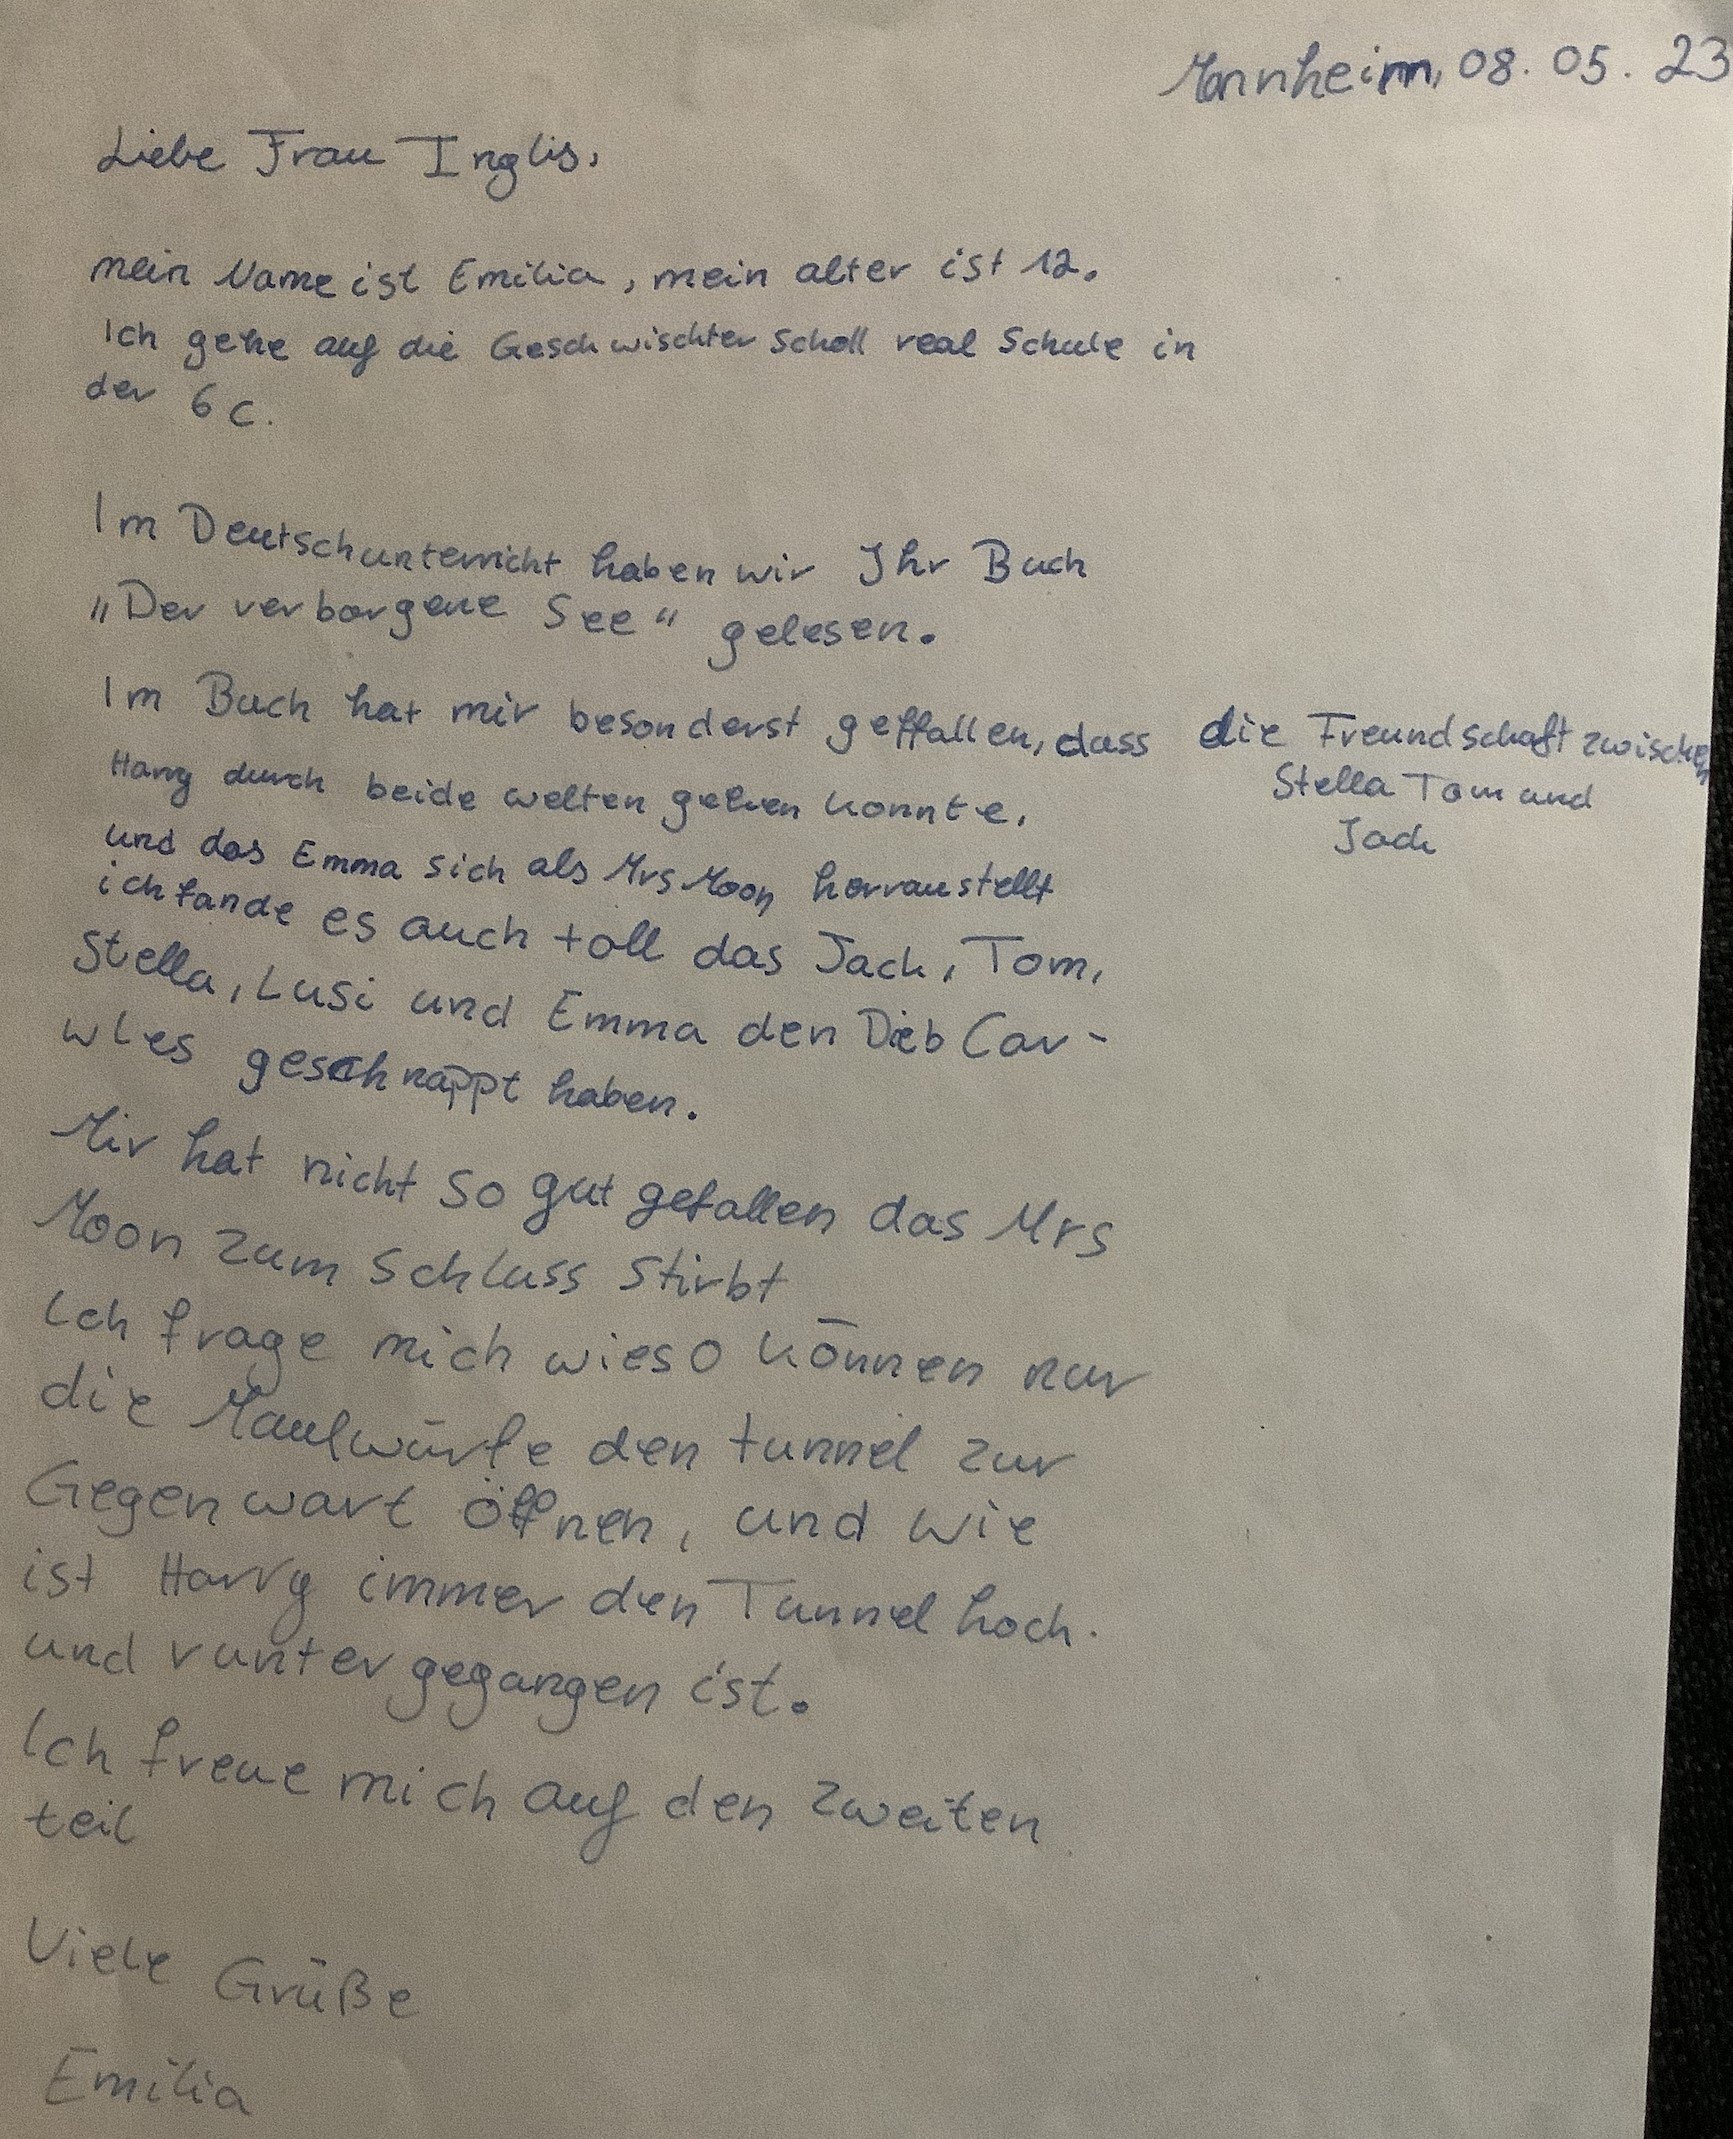 Mannheim, 08. 05. 23
Liebe Frau Inglis,
mein Name ist Emilia, mein alter ist 12.
Ich gehe auf die Geschwischter Scholl real Schule in
der 6c.
Im Deutschunterricht haben wir Ihr Buch
"Der verborgene See" gelesen.
Im Buch hat mir besonderst geffallen, dass die Freundschaft zwischen
Stella Tom und
Jack
Harry durch beide welten gehen konnte.
und das Emma sich als Mrs Moon herraustellt
ich fande es auch toll das Jack, Tom,
Stella, Lusi und Emma den Dieb Cav-
wles geschnappt haben.
Mir hat nicht so gut gefallen das Mrs
Moon zum Schluss stirbt
Ich frage mich wieso können nur
die Maulwürfe den tunnel zur
Gegenwart öffnen, und wie
ist Harry immer den Tunnel hoch
und runter gegangen ist.
Ich freue mich auf den zweiten
teil
Viele Grüße
Emilia